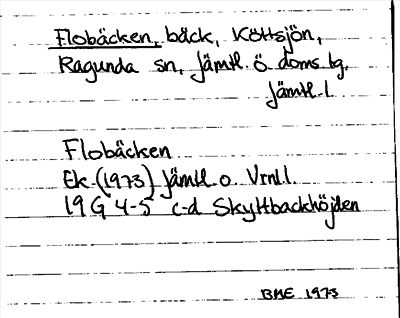 Flobäcken, bäck, Köttsjön,
Ragunda sn, Jämtl. ö. doms.tg,
Jämtl. l.
Flobäcken
Ek.(1973) Jämtl. o. Vrnl l.
19 G 4-5 c-d Skyttbackhöjden
BME 1973